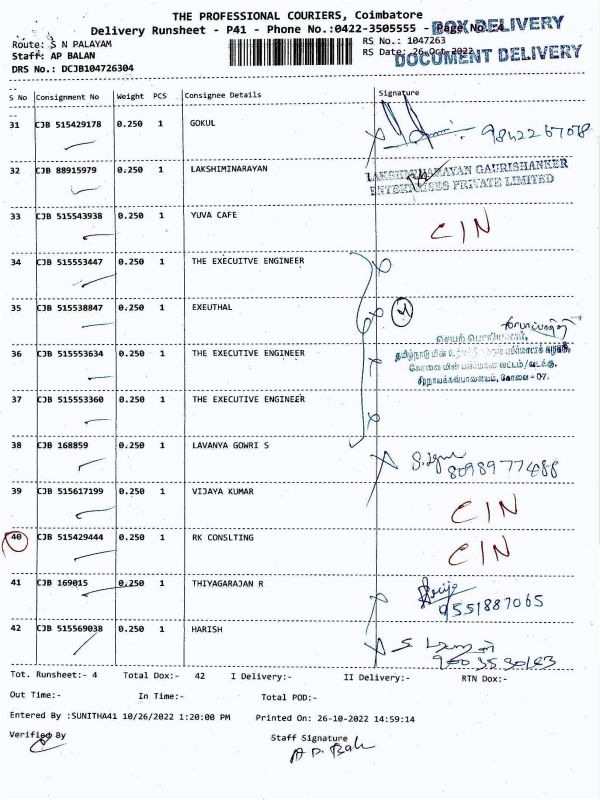 THE PROFESSIONAL COURIERS, Coimbatore
Delivery Runsheet - P41 - Phone No.:0422-3505555 - Page No.:4
BOX DELIVERY
Route: S N PALAYAM
RS No.: 1047263
Staff: AP BALAN
RS Date: 26-Oct-2022
DOCUMENT DELIVERY
DRS No.: DCJB104726304
S No Consignment No Weight PCS Consignee Details Signature
31 CJB 515429178 0.250 1 GOKUL
32 CJB 88915979 0.250 1 LAKSHIMINARAYAN
LAKSHMINARAYAN GAURISHANKER
ENTERPRISES PRIVATE LIMITED
33 CJB 515543938 0.250 1 YUVA CAFE C/N
34 CJB 515553447 0.250 1 THE EXECUITVE ENGINEER
35 CJB 515538847 0.250 1 EXEUTHAL
36 CJB 515553634 0.250 1 THE EXECUTIVE ENGINEER
கோவை - 07.
37 CJB 515553360 0.250 1 THE EXECUTIVE ENGINEER
38 CJB 168859 0.250 1 LAVANYA GOWRI S
8098977488
39 CJB 515617199 0.250 1 VIJAYA KUMAR C/N
40 CJB 515429444 0.250 1 RK CONSLTING C/N
41 CJB 169015 0.250 1 THIYAGARAJAN R
9551887065
42 CJB 515569038 0.250 1 HARISH
Tot. Runsheet:- 4 Total Dox:- 42 I Delivery:- II Delivery:- RTN Dox:-
Out Time:- In Time:- Total POD:-
Entered By :SUNITHA41 10/26/2022 1:20:00 PM Printed On: 26-10-2022 14:59:14
Verified By Staff Signature
A P. Bal